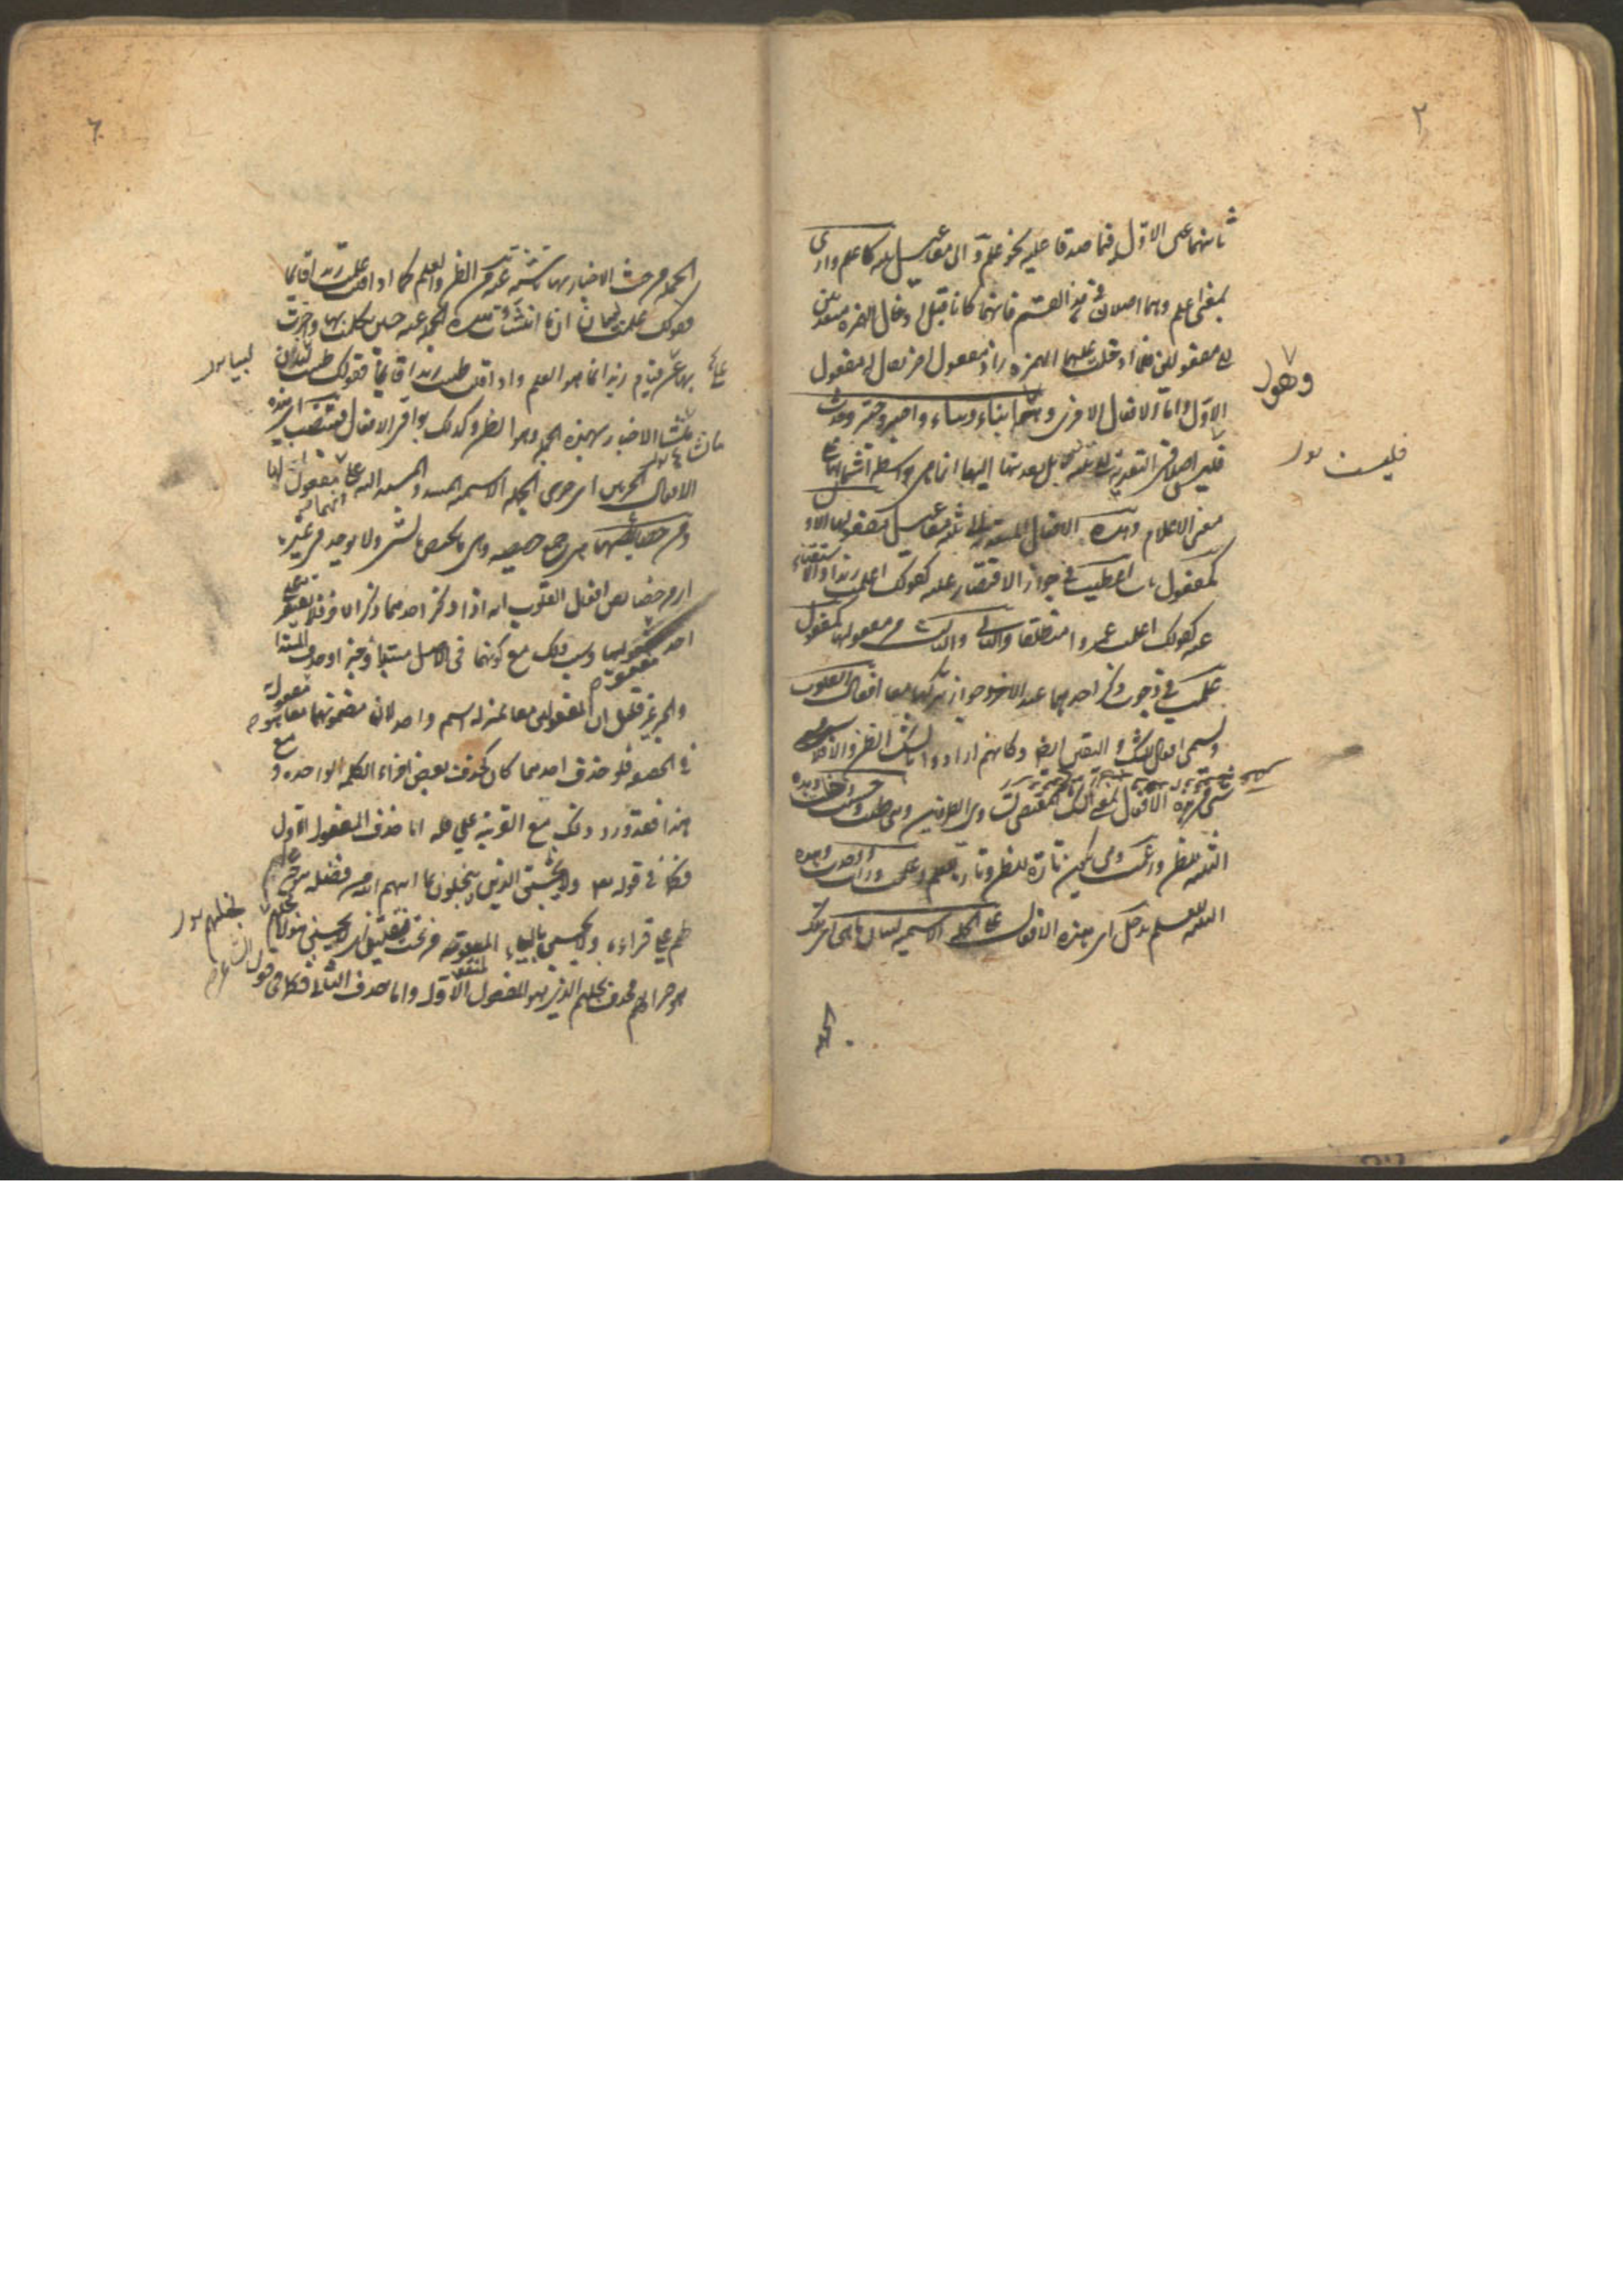 ٢
ثانيهما على الاول فيما صدقا عليه نحو علم والى مفاعيل ثلثة كاعلم وارى
بمعنى اعلم وهما اصلان فى هذا القسم فانهما كانا قبل ادخال الهمزة متعديين
الى مفعولين فلما ادخلت عليهما الهمزة زاد مفعول اخر يقال له المفعول
الاول واما الافعال الاخرى وهى انباء ونباء واخبر وخبر وحدث
وهو
فليست اصلا فى التعدية الى ثلثة بل تعديتها اليها انما هى بواسطة اشتمالها على
فليست
معنى الاعلام وهذه الافعال المتعدية الى ثلثة مفاعيل مفعولها الاول
كمفعول باب اعطيت فى جواز الاقتصار عليه كقولك اعلمت زيدا والاستغناء
عنه كقولك اعلمت عمروا منطلقا والثانى والثالث من مفعولها كمفعولى
علمت فى وجوب ذكر احدهما عند الاخر وجواز تركهما معا افعال القلوب
وتسمى افعال الشك واليقين ايضا وكانهم ارادوا بالشك الظن والا فلا
شىء من هذه الافعال بمعنى الشك المقتضى تساوى الطرفين وهى ظننت وحسبت وخلت وهذه
الثلثة للظن وزعمت وهى تكون تارة للظن وتارة للعلم وعلمت ورأيت ووجدت وهذه
الثلثة للعلم تدخل اى هذه الافعال على الجملة الاسمية لبيان ما هى اى تلك
الجملة
٦
الجملة من حيث الاخبار بها ناشئة عنه من الظن والعلم كما اذا قلت علمت زيدا قائما
فقولك علمت لبيان ان ما انشئت هذه الجملة عنه حين تكلمت بها واخبرت
بها عن قيام زيد انما هو العلم واذا قلت ظننت زيدا قائما فقولك ظننت لبيان
لبيان
ان منشأ الاخبار بهذه الجملة هو الظن وكذلك بواقى الافعال فتنصب اى هذه
الافعال الجزئين اى جزئى الجملة الاسمية المسند والمسند اليه على انهما مفعولان لها
ومن خصائصها هى جمع خصيصة وهى ما يختص بالشىء ولا يوجد فى غيره
اى ومن خصائص افعال القلوب انه اذا ذكر احدهما ذكر الاخر فلا يقتصر على
احد مفعوليها وسبب ذلك مع كونهما فى الاصل مبتدأ وخبرا وحذف المبتدا
والخبر غير قليل ان المفعولين معا بمنزلة اسم واحد لان مضمونهما معا هو المفعول به
فى الحقيقة فلو حذف احدهما كان كحذف بعض اجزاء الكلمة الواحدة و
مع هذا فقد ورد ذلك مع القرينة على قلة اما حذف المفعول الاول
فكما فى قوله تعالى ولا يحسبن الذين يبخلون بما اتيهم الله من فضله هو خيرا
لهم على قراءة ولا يحسبن بالياء المنقوطة من تحت بنقطتين اى لا يحسبن هؤلاء بخلهم
بخلهم
هو خيرا لهم فحذف بخلهم الذى هو المفعول الاول واما حذف الثانى فكما فى قول الشاعر